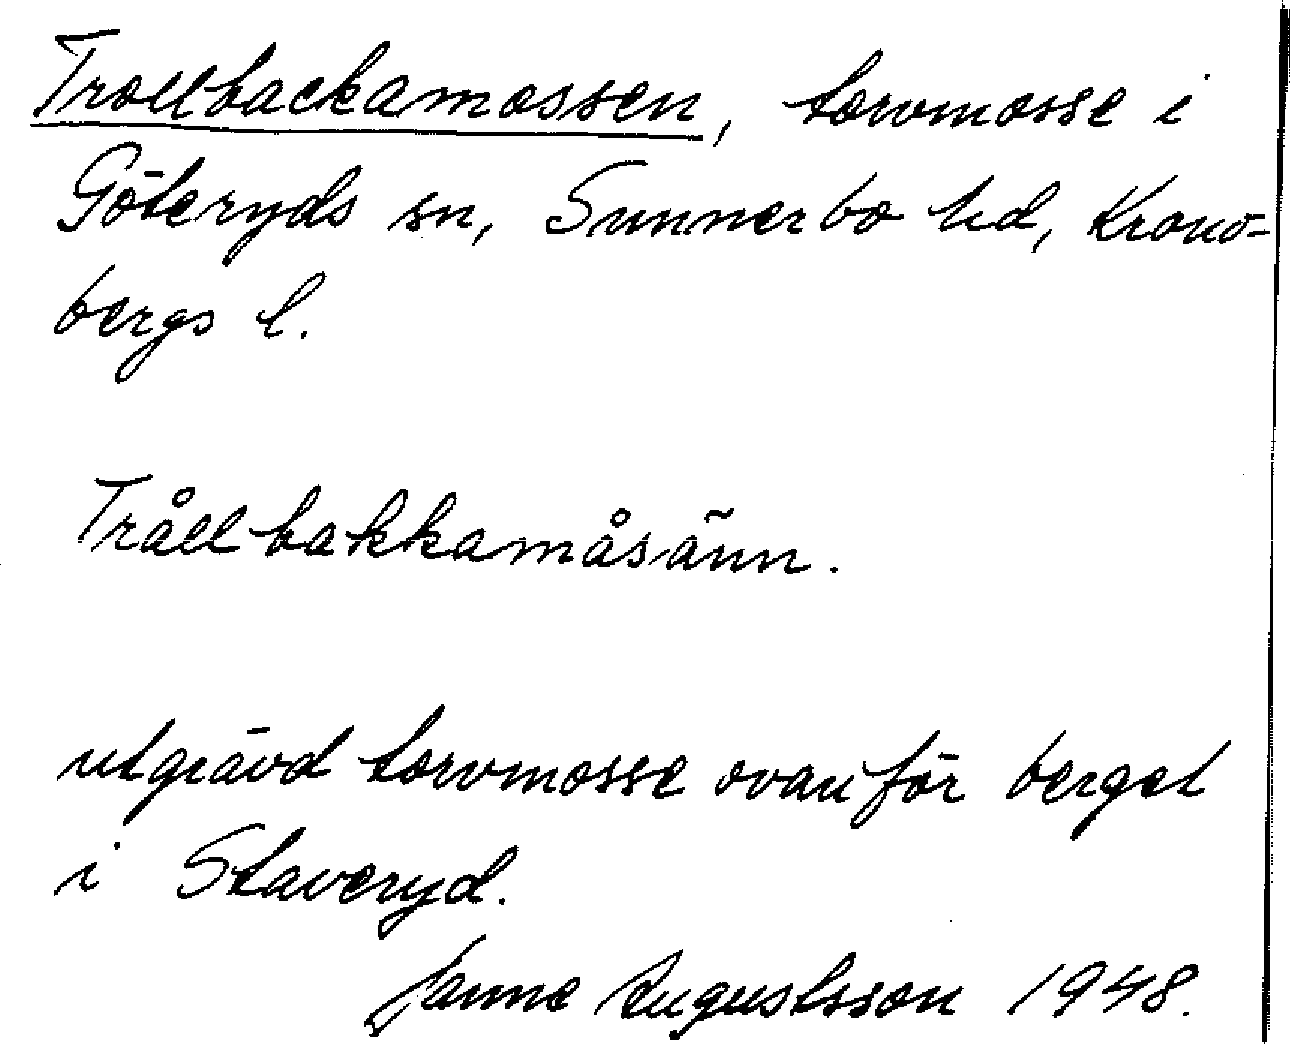 Trollbackamossen, torvmosse i
Göteryds sn, Sunnerbo hd, Krono-
bergs l.
Trållbakkamåsänn.
utgrävd torvmosse ovanför berget
i Staveryd.
Janne Augustsson 1948.